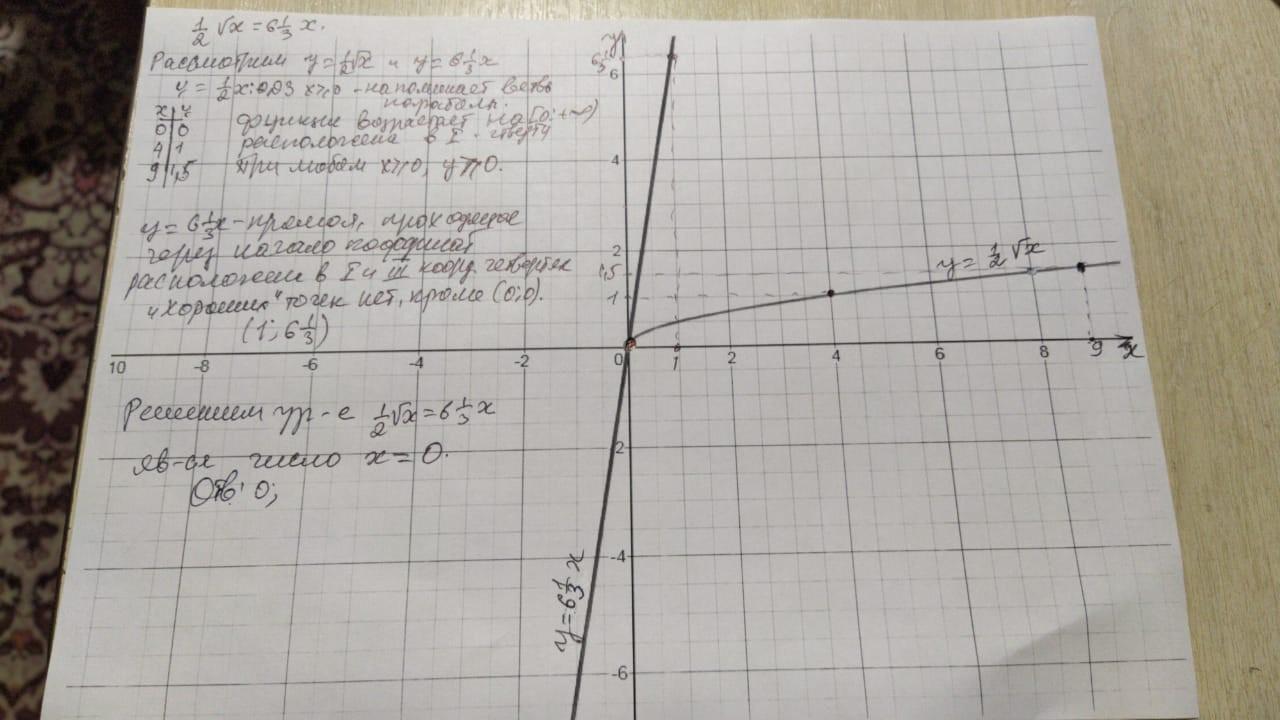 ½ √x = 6⅓ x.
Рассмотрим y = ½√x и y = 6⅓ x
y = ½x: ООЗ x≥0 - напоминает ветвь
параболы.
x | y
0 | 0
4 | 1
9 | 1,5
функция возрастает на [0; +∞)
расположена в I - четверти
При любом x≥0, y≥0.
y = 6⅓x - прямая, проходящая
через начало координат
расположен в I и III коорд. четвертях
"хороших" точек нет, кроме (0;0).
(1; 6⅓)
Решением ур-е ½√x = 6⅓ x
яв-ся число x = 0.
Отв: 0;
y
6⅓
6
4
2
1,5
1
10 -8 -6 -4 -2 0 1 2 4 6 8 9 x
2
-4
-6
y = ½ √x
y = 6⅓ x